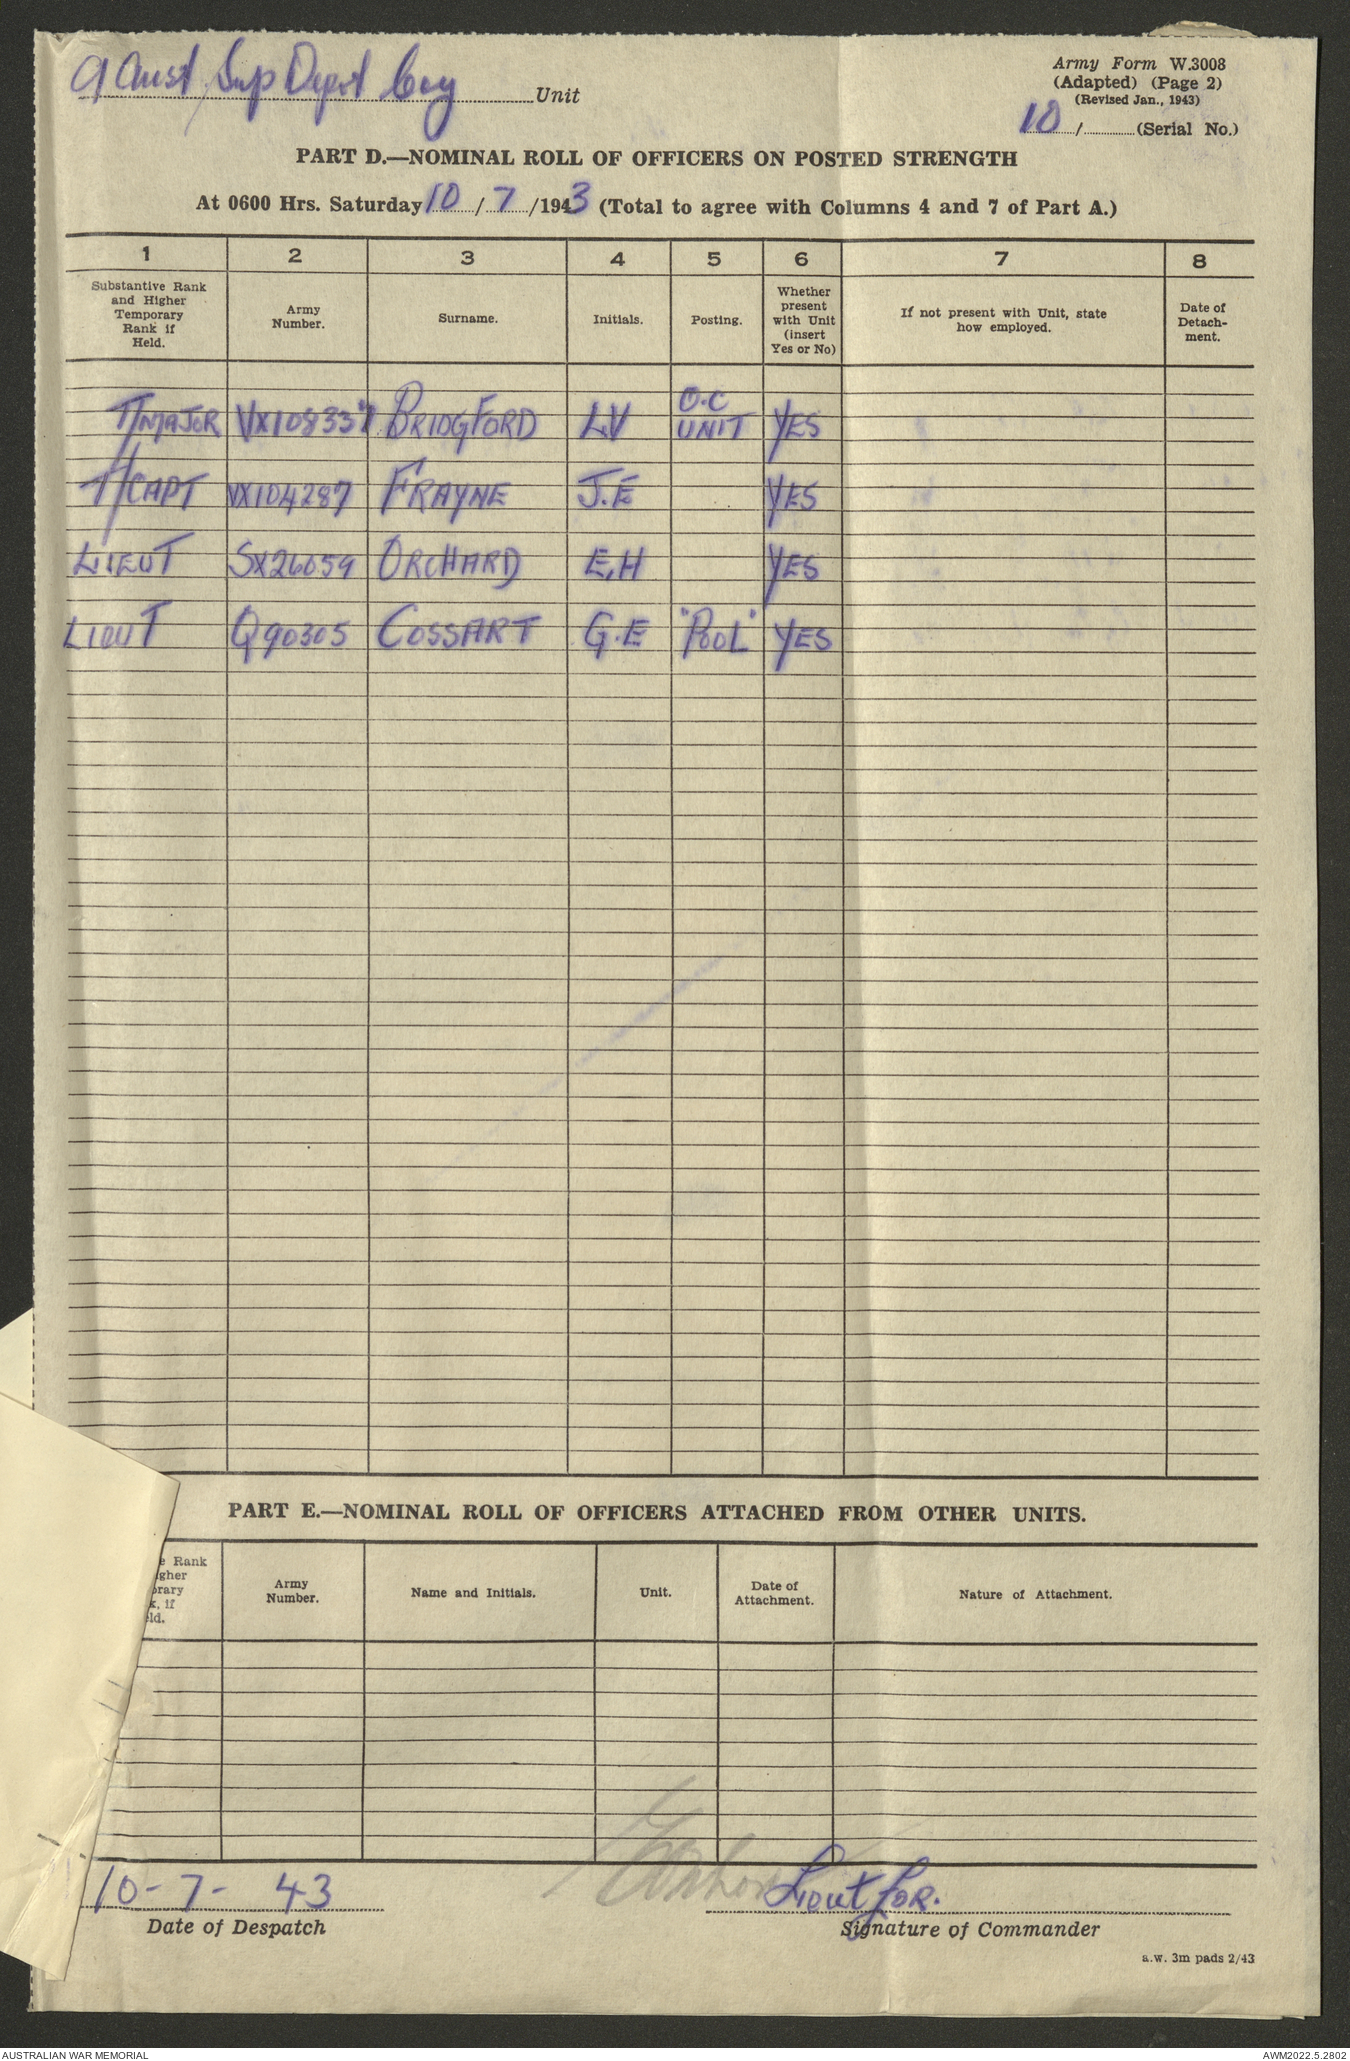 9 Aust Sup Depot Coy Unit
Army Form W.3008
(Adapted) (Page 2)
(Revised Jan., 1943)
10 / (Serial No.)
PART D.—NOMINAL ROLL OF OFFICERS ON POSTED STRENGTH
At 0600 Hrs. Saturday 10 / 7 /1943 (Total to agree with Columns 4 and 7 of Part A.)
1 2 3 4 5 6 7 8
Substantive Rank
and Higher
Temporary
Rank if
Held.
Army
Number.
Surname.
Initials.
Posting.
Whether
present
with Unit
(insert
Yes or No)
If not present with Unit, state
how employed.
Date of
Detach-
ment.
T/MAJOR VX108337 BRIDGFORD LV O.C UNIT YES
T/CAPT VX104287 FRAYNE J.E YES
LIEUT SX26059 ORCHARD E.H YES
LIEUT Q90305 COSSART G.E "POOL" YES
PART E.—NOMINAL ROLL OF OFFICERS ATTACHED FROM OTHER UNITS.
e Rank
igher
orary
k, if
eld.
Army
Number.
Name and Initials.
Unit.
Date of
Attachment.
Nature of Attachment.
10-7-43
Lieut for.
Date of Despatch
Signature of Commander
a.w. 3m pads 2/43
AUSTRALIAN WAR MEMORIAL
AWM2022.5.2802